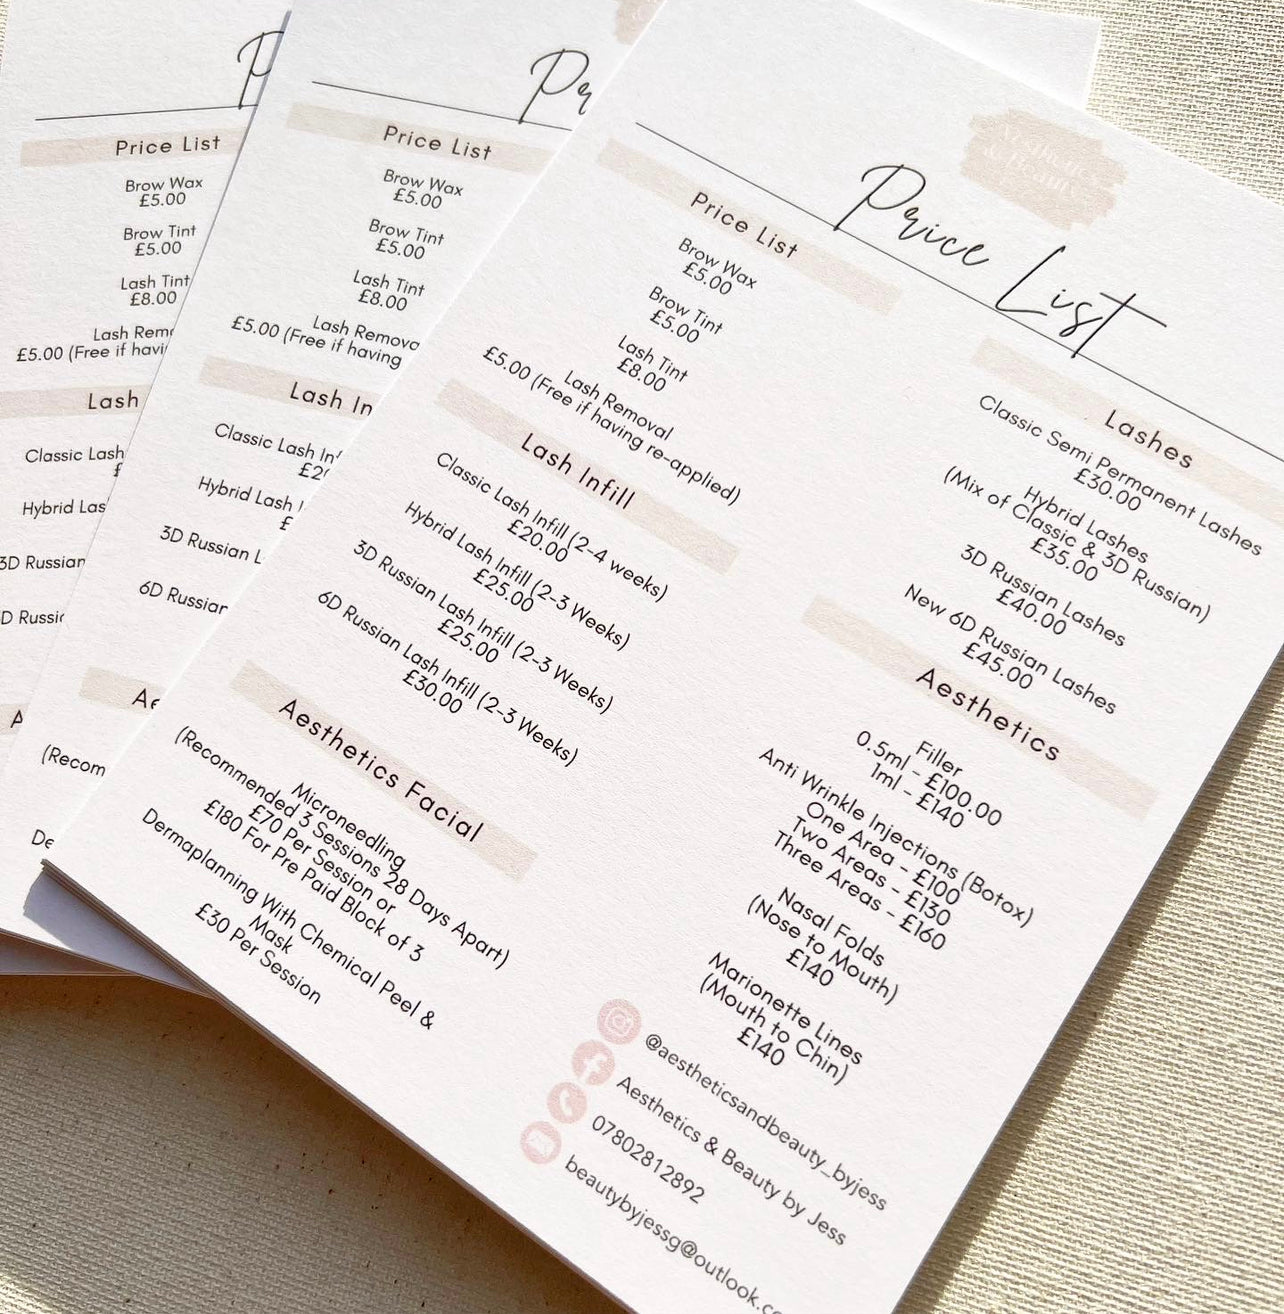 Price List
Price List
Brow Wax
£5.00
Brow Tint
£5.00
Lash Tint
£8.00
Lash Removal
£5.00 (Free if having re-applied)
Lash Infill
Classic Lash Infill (2-4 weeks)
£20.00
Hybrid Lash Infill (2-3 Weeks)
£25.00
3D Russian Lash Infill (2-3 Weeks)
£25.00
6D Russian Lash Infill (2-3 Weeks)
£30.00
Aesthetics Facial
Microneedling
(Recommended 3 Sessions 28 Days Apart)
£70 Per Session or
£180 For Pre Paid Block of 3
Dermaplanning With Chemical Peel &
Mask
£30 Per Session
Lashes
Classic Semi Permanent Lashes
£30.00
Hybrid Lashes
(Mix of Classic & 3D Russian)
£35.00
3D Russian Lashes
£40.00
New 6D Russian Lashes
£45.00
Aesthetics
Filler
0.5ml - £100.00
1ml - £140
Anti Wrinkle Injections (Botox)
One Area - £100
Two Areas - £130
Three Areas - £160
Nasal Folds
(Nose to Mouth)
£140
Marionette Lines
(Mouth to Chin)
£140
@aestheticsandbeauty_byjess
Aesthetics & Beauty by Jess
07802812892
beautybyjessg@outlook.co
Price List
Brow Wax
£5.00
Brow Tint
£5.00
Lash Tint
£8.00
Lash Remova
£5.00 (Free if having
Lash In
Classic Lash Inf
Hybrid Lash I
3D Russian L
6D Russian
Price List
Brow Wax
£5.00
Brow Tint
£5.00
Lash Tint
£8.00
Lash Rem
£5.00 (Free if havi
Lash
Classic Lash
Hybrid Las
3D Russian
D Russi
(Recom
De